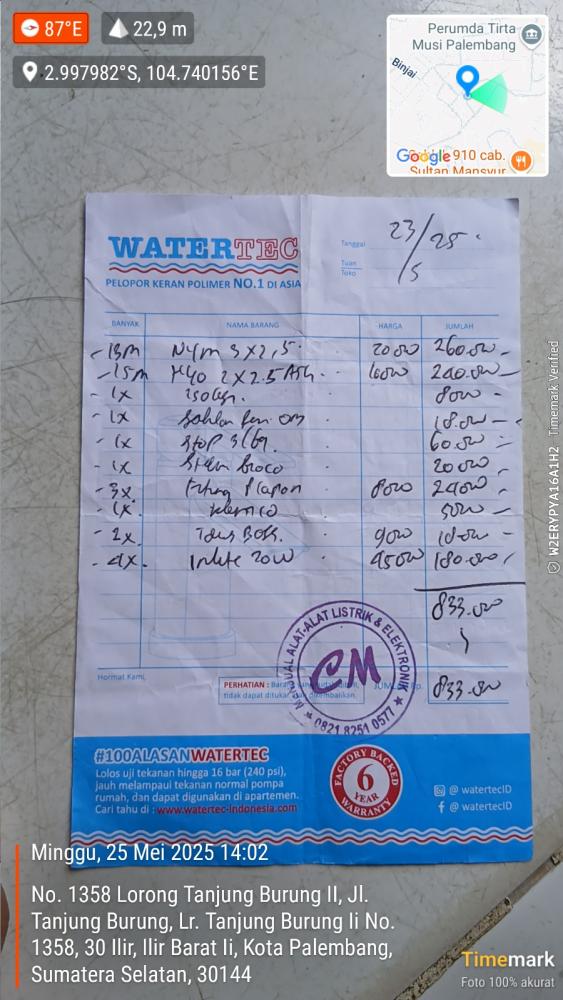 87°E 22,9 m
2.997982°S, 104.740156°E
Perumda Tirta
Musi Palembang
Binjai
Google 910 cab.
Sultan Mansyur
WATERTEC
PELOPOR KERAN POLIMER NO.1 DI ASIA
Tanggal 23/5/25
Tuan
Toko
BANYAK NAMA BARANG HARGA JUMLAH
- 13m NYM 3x2,5 20000 260.000
- 15m 2x2.5 16000 240.000
- 1x 8000
- 1x 18.000
- 1x Stop 60.000
- 1x Broco 20000
- 3x Plapon 8000 24000
- 1x 5000
- 2x 9000 18.000
- 4x 20W 45000 180.000
833.000
MENJUAL ALAT-ALAT LISTRIK & ELEKTRONIK
CM
0821 8251 0577
Hormat Kami,
PERHATIAN :
tidak dapat ditukar
JUMLAH Rp. 833.000
#100ALASANWATERTEC
Lolos uji tekanan hingga 16 bar (240 psi),
jauh melampaui tekanan normal pompa
rumah, dan dapat digunakan di apartemen.
Cari tahu di : www.watertec-indonesia.com
FACTORY BACKED
6
YEAR
WARRANTY
@ watertecID
@ watertecID
W2ERYPYA16A1H2 Timemark Verified
Minggu, 25 Mei 2025 14:02
No. 1358 Lorong Tanjung Burung II, Jl.
Tanjung Burung, Lr. Tanjung Burung Ii No.
1358, 30 Ilir, Ilir Barat Ii, Kota Palembang,
Sumatera Selatan, 30144
Timemark
Foto 100% akurat